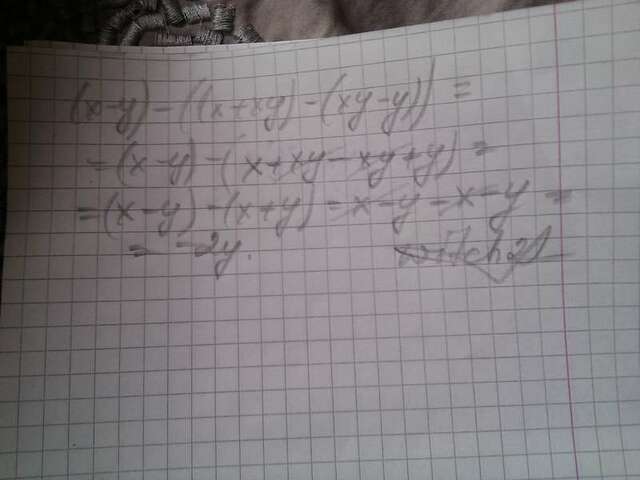 (x-y)-((x+xy)-(xy-y))=
=(x-y)-(x+xy-xy+y)=
=(x-y)-(x+y)=x-y-x-y=
=-2y.
witch21